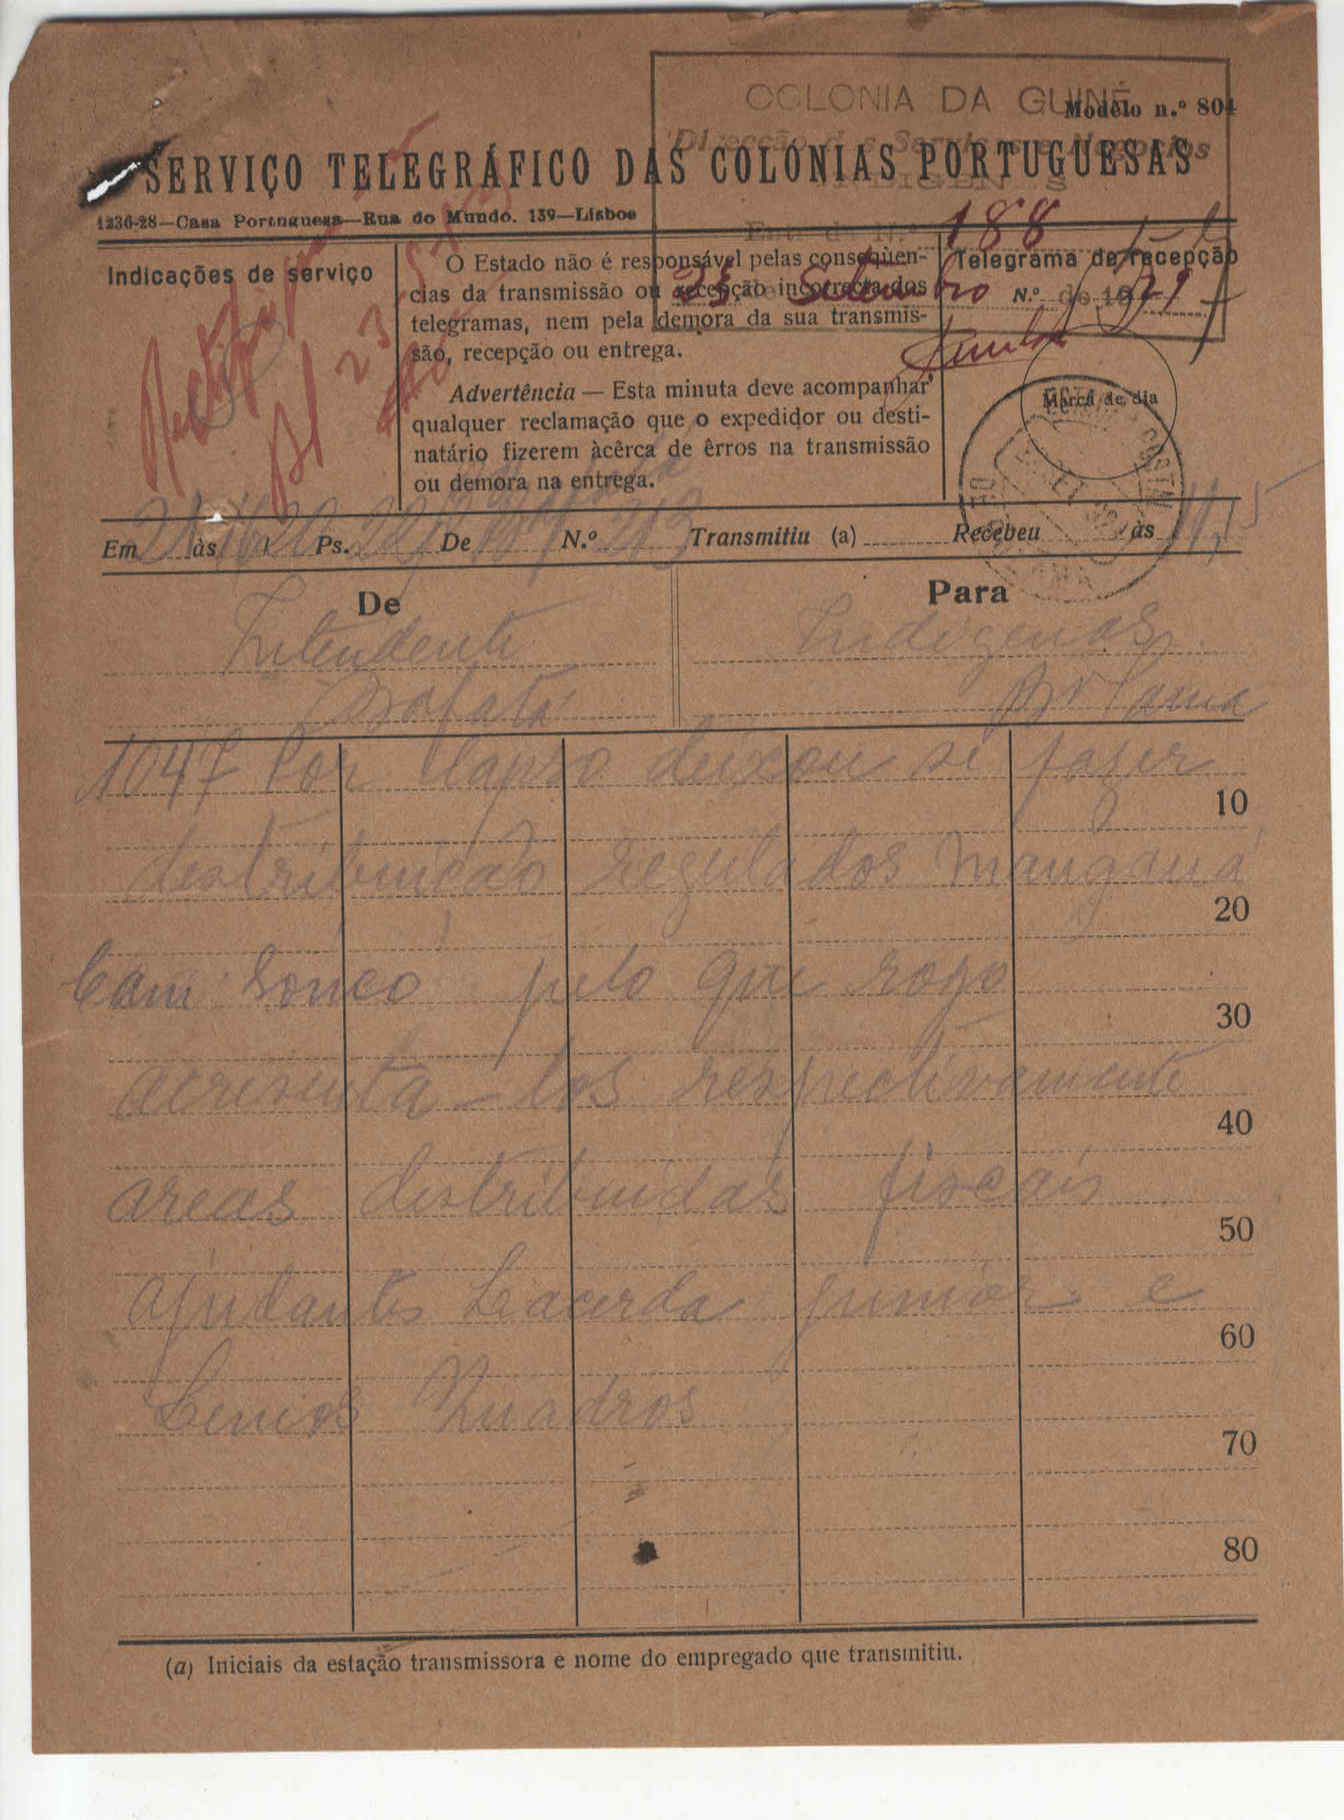 COLONIA DA GUINÉ
Modêlo n.º 804
Direcção dos Serviços e Negocios
SERVIÇO TELEGRÁFICO DAS COLONIAS PORTUGUESAS
1236-28—Casa Portuguesa—Rua do Mundo. 139—Lisboe
188
Indicações de serviço
O Estado não é responsável pelas conseqüen-
cias da transmissão ou recepção incorrecta dos
telegramas, nem pela demora da sua transmis-
são, recepção ou entrega.
Advertência — Esta minuta deve acompanhar
qualquer reclamação que o expedidor ou desti-
natário fizerem àcêrca de êrros na transmissão
ou demora na entrega.
Telegrama de recepção
25 de Setembro de 19
N.º
Marca de dia
Em às Ps. De N.º 213 Transmitiu (a) Recebeu às 11,5
De
Para
Intendente
Indigenas
Bafatá
Bolama
1047 Por lapso deixou se fazer
10
distribuição regulados Mancaná
20
Sonco pelo que rogo
30
acresenta-los respectivamente
40
areas distribuidas fiscais
50
ajudantes Lacerda junior e
60
Lemos Quadros
70
80
(a) Iniciais da estação transmissora e nome do empregado que transmitiu.